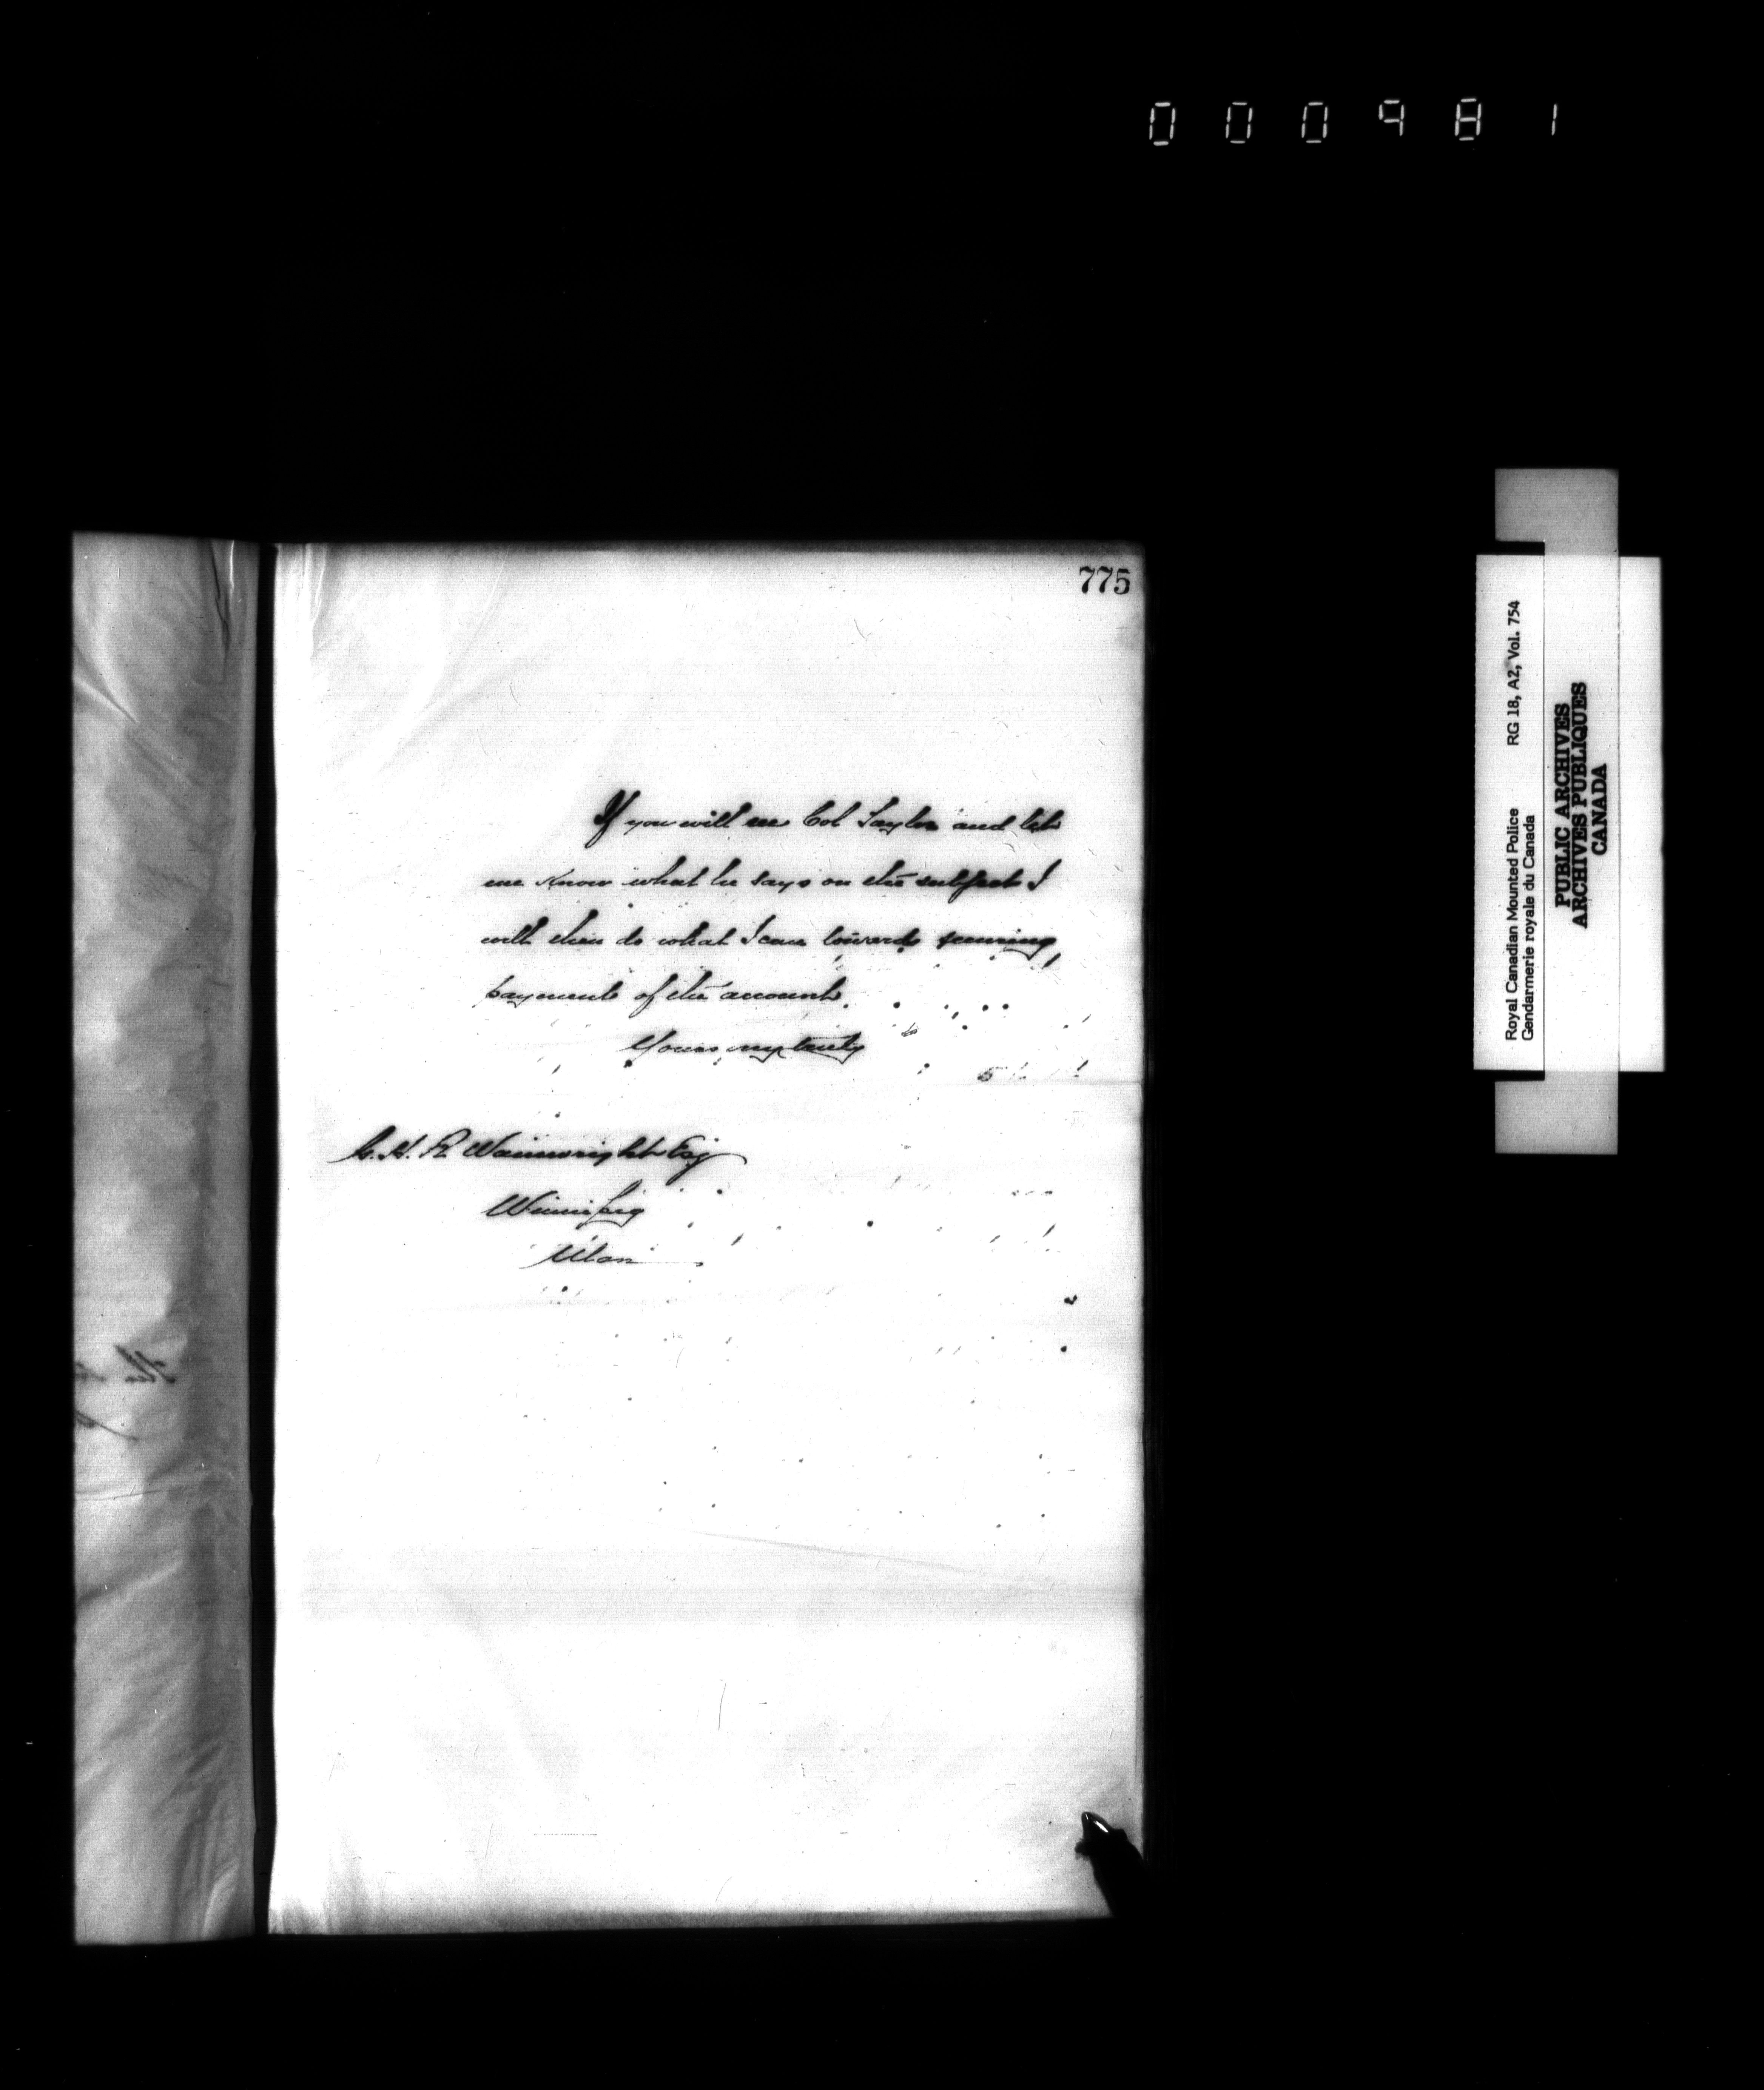 000981
775
If you will see Col Taylor and let
me know what he says on the subject I
will then do what I can towards securing
payment of the account.
Yours very truly
G. H. R Wainwright Esq
Winnipeg
Man
Royal Canadian Mounted Police RG 18, A2, Vol. 754
Gendarmerie royale du Canada
PUBLIC ARCHIVES
ARCHIVES PUBLIQUES
CANADA